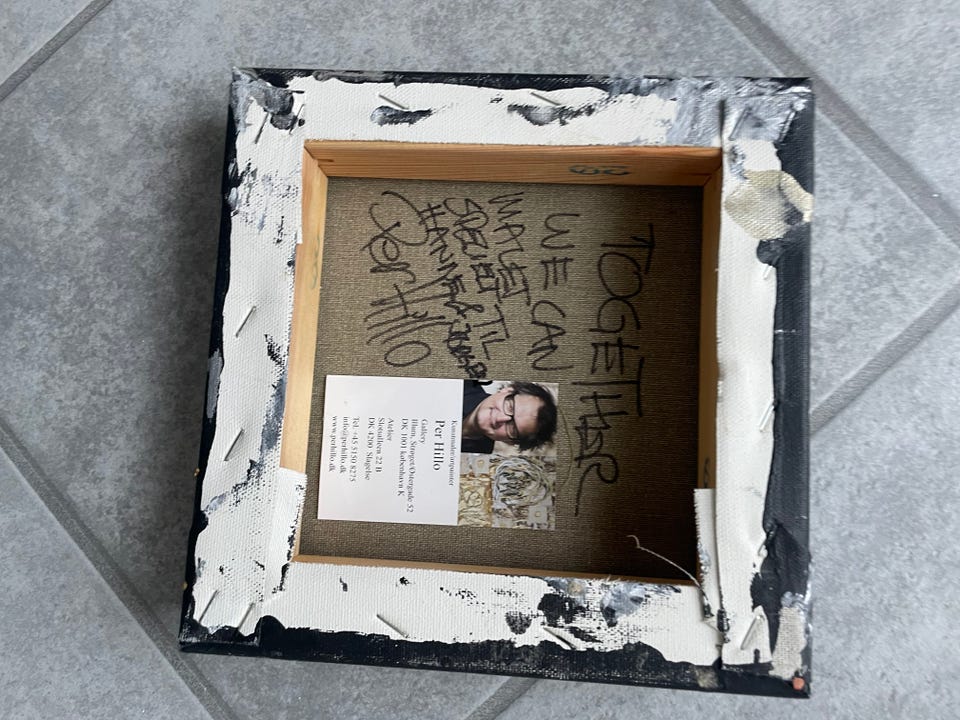 TOGETHER
WE CAN
MALET
SPECIELT TIL
HANNE & JØRGEN
Per Hillo
Kunstmaler/artpainter
Per Hillo
Gallery
Illum, Strøget/Østergade 52
DK 1001 københavn K
Atelier
Slotsalleen 22 B
DK 4200 Slagelse
Tel. +45 5150 8275
info@perhillo.dk
www.perhillo.dk